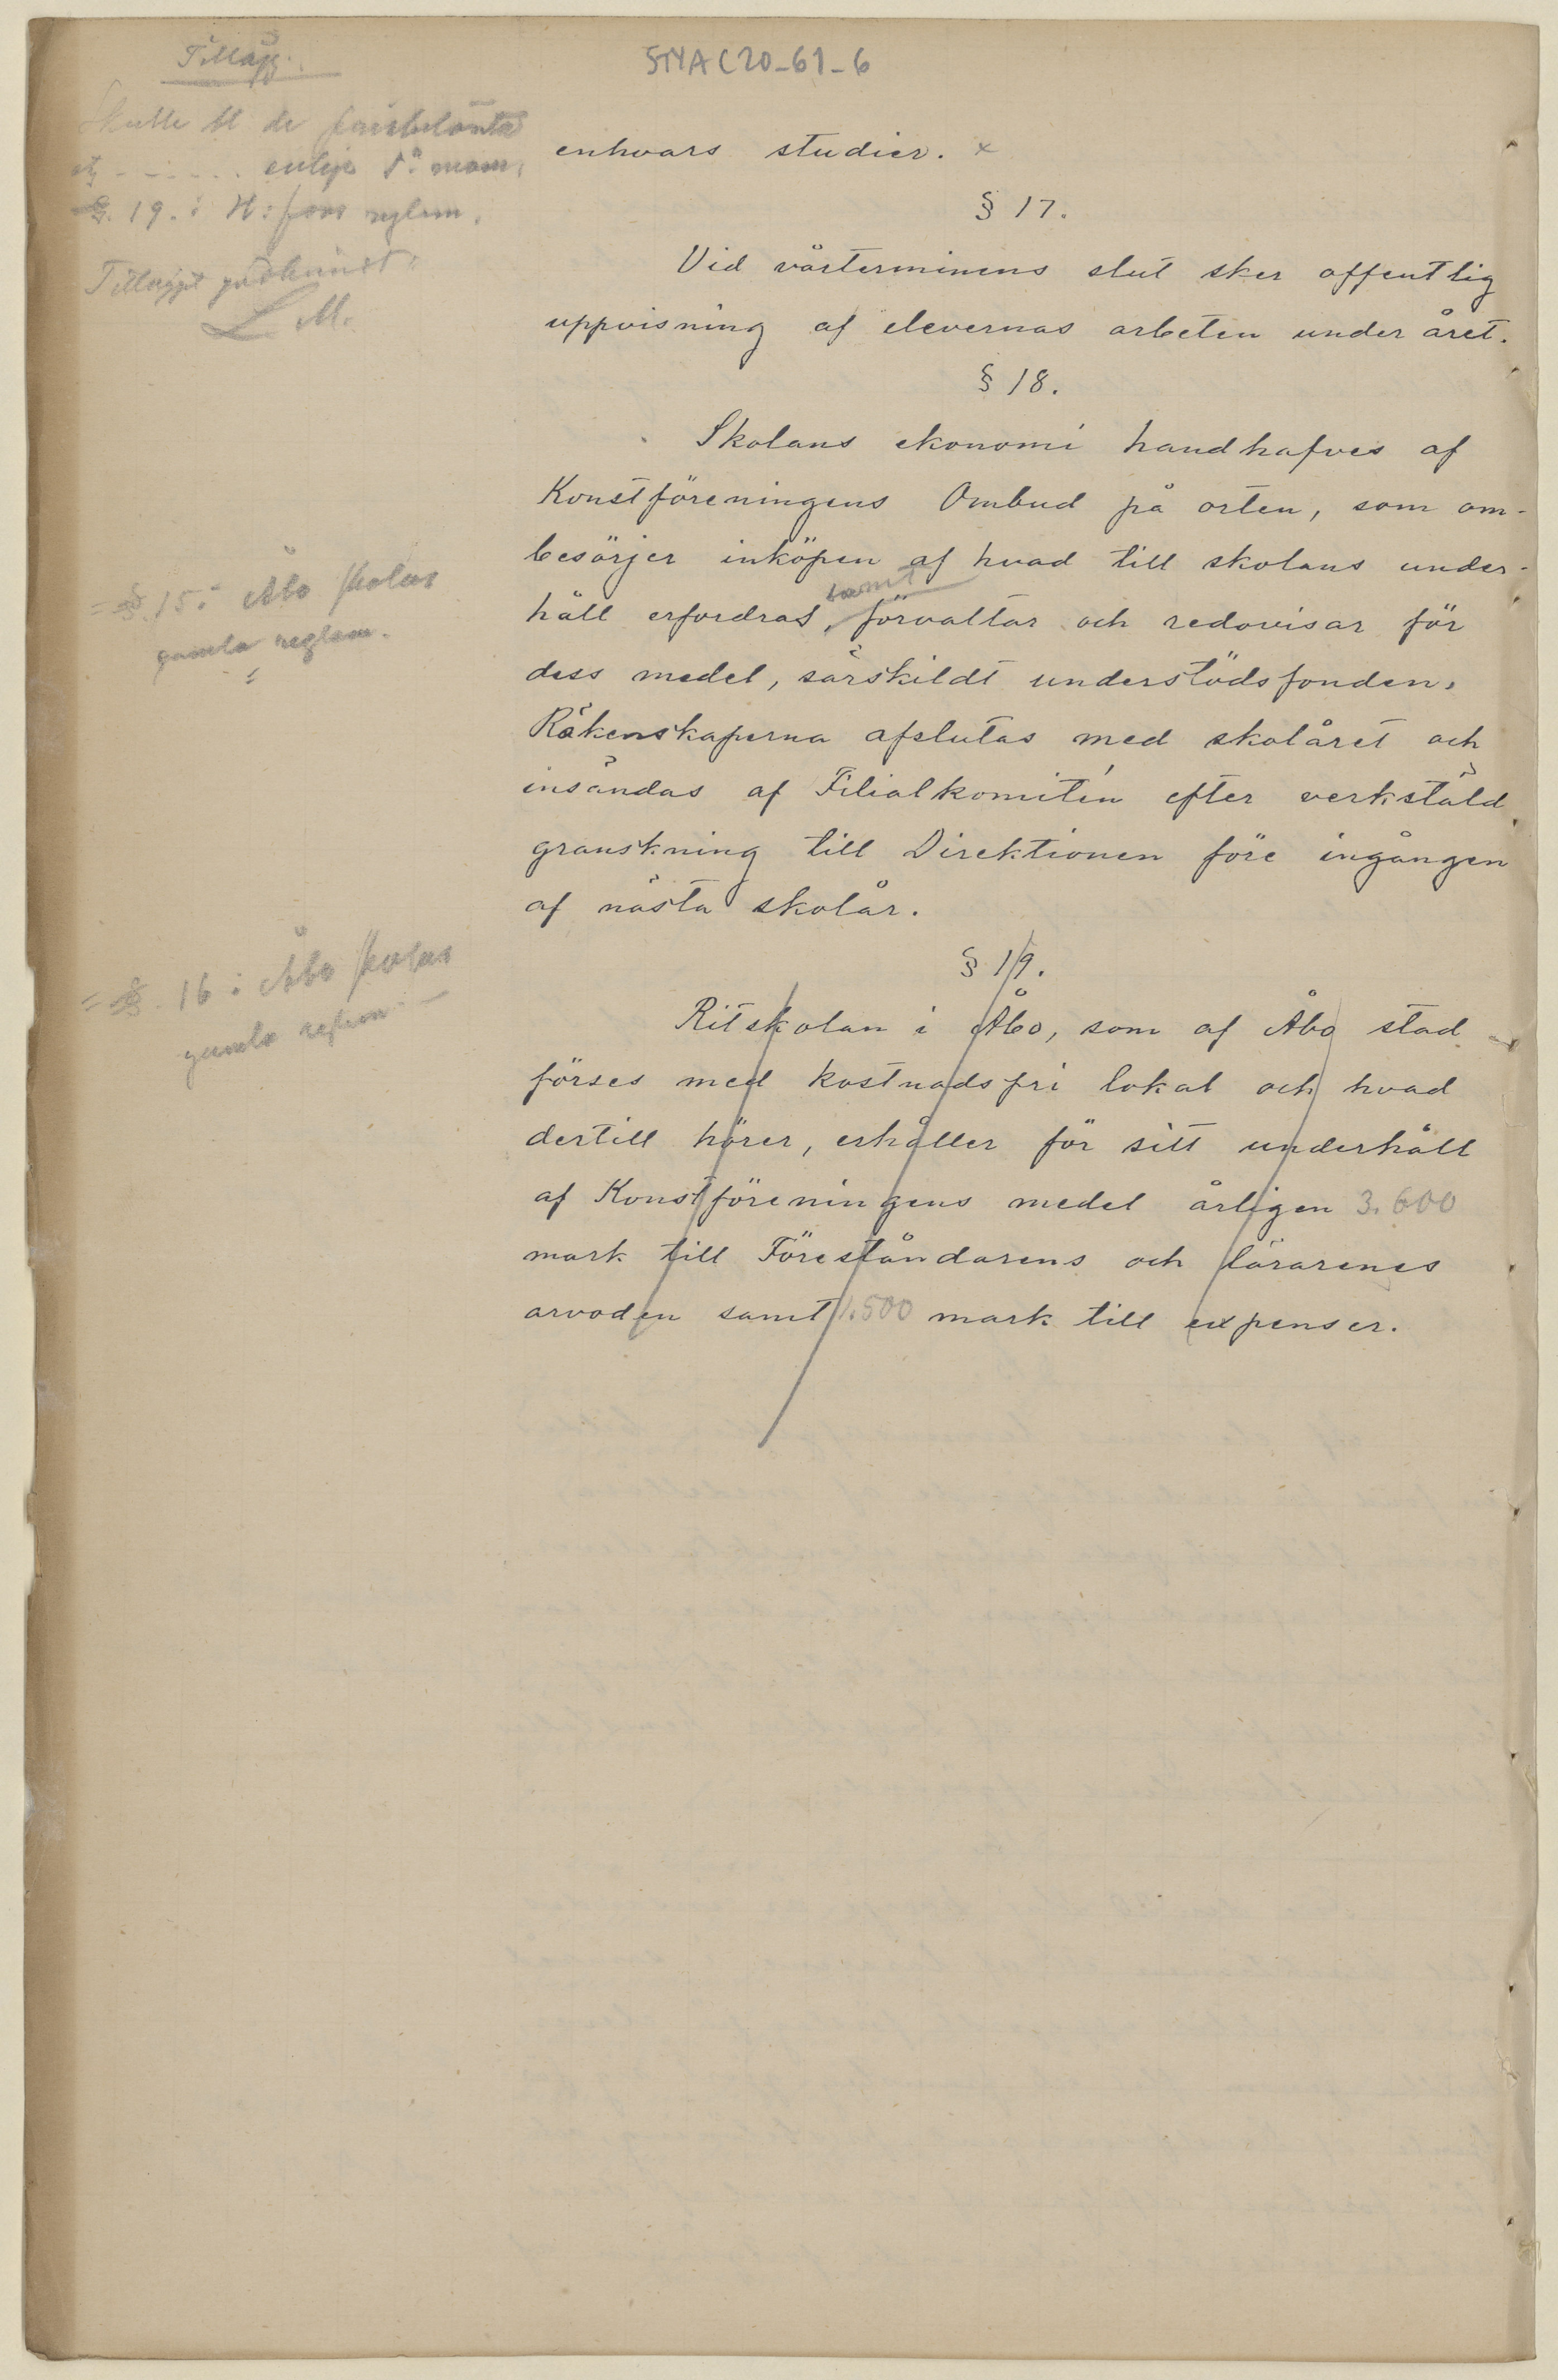 Tillägg.
STYA C20-61-6
Skulle til de prisbelönta
etc - - - - - enligt 5:e mom.
§. 19. i H:fors reglem.
Tillägget godkändt:
L M.
enhvars studier. ×
§ 17.
Vid vårterminens slut sker offentlig
uppvisning af elevernas arbeten under året.
§ 18.
Skolans ekonomi handhafves af
Konstföreningens Ombud på orten, som om-
besörjer inköpen af hvad till skolans under-
samt
håll erfordras, förvaltar och redovisar för
dess medel, särskildt understödsfonden.
Räkenskaperna afslutas med skolåret och
insändas af Filialkomitén efter verkstäld
granskning till Direktionen före ingången
af nästa skolår.
= §. 15 i Åbo skolas
gamla reglem.
§ 19.
Ritskolan i Åbo, som af Åbo stad
förses med kostnadsfri lokal och hvad
dertill hörer, erhåller för sitt underhåll
af Konstföreningens medel årligen 3.600
mark till Föreståndarens och lärarenes
arvoden samt 1.500 mark till expenser.
= §. 16 i Åbo skolas
gamla reglem